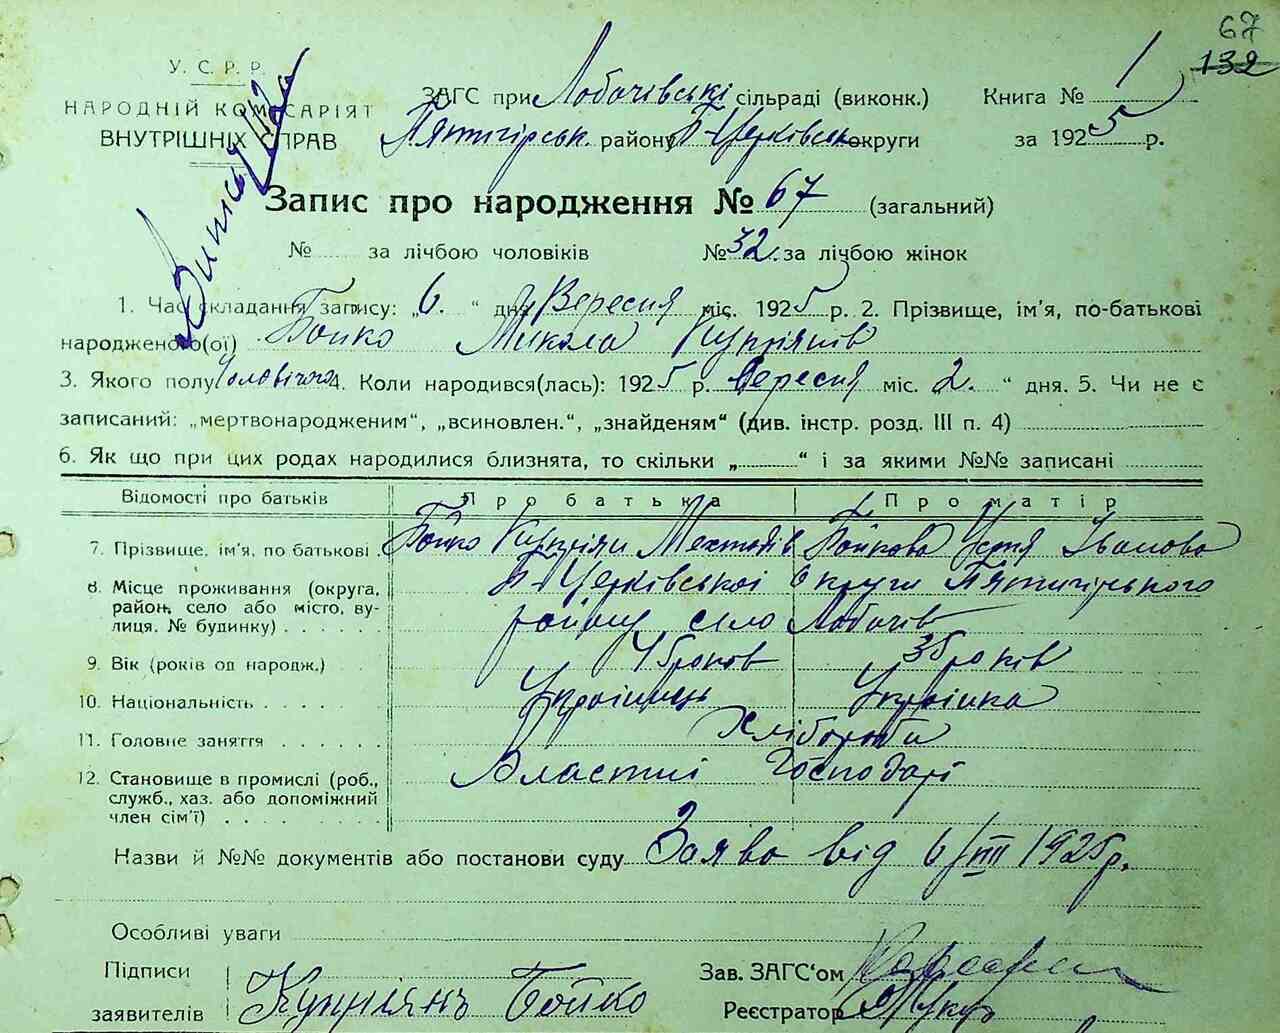 67
132
У. С. Р. Р.
НАРОДНІЙ КОМІСАРІЯТ
ВНУТРІШНІХ СПРАВ
ЗАГС при Лобачівські сільраді (виконк.) Книга № 1
Пятигірськ. району Б-Церківськ округи за 1925 р.
Запис про народження № 67 (загальний)
№ за лічбою чоловіків № 32. за лічбою жінок
1. Час складання запису: „6. “ дня Вересня міс. 1925 р. 2. Прізвище, ім'я, по-батькові
народженого(ої) Бойко Микола Купріянів
3. Якого полу Чоловічого 4. Коли народився(лась): 1925 р. Вересня міс. 2. “ дня. 5. Чи не є
записаний: „мертвонародженим“, „всиновлен.“, „знайденям“ (див. інстр. розд. III п. 4)
6. Як що при цих родах народилися близнята, то скільки „ “ і за якими №№ записані
Відомості про батьків Про батька Про матір
7. Прізвище, ім'я, по батькові Бойко Купріян Бойкова Устя Іванова
8. Місце проживання (округа, район, село або місто, вулиця, № будинку) Б-Церківської округи Пятигірського
району село Лобачів
9. Вік (років од народж.) років 35 років
10. Національність Українець Українка
11. Головне заняття Хліборобі
12. Становище в промислі (роб., служб., хаз. або допоміжний член сім'ї) Властні Господарі
Назви й №№ документів або постанови суду Заява від 1925 р.
Особливі уваги
Підписи Зав. ЗАГС'ом
заявителів Купріянъ Бойко Реєстратор